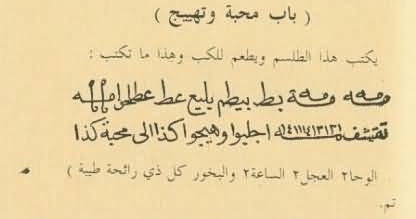 ( باب محبة وتهييج )
يكتب هذا الطلسم ويطعم للكب وهذا ما تكتب :
بط بيطم يليع عط
اجلبوا وهيجوا كذا الى محبة كذا
الوحا٢ العجل٢ الساعة٢ والبخور كل ذي رائحة طيبة )
تم.